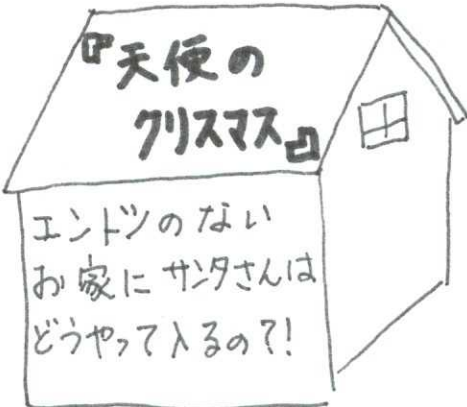 『天使の
クリスマス』
エントツのない
お家にサンタさんは
どうやって入るの?!